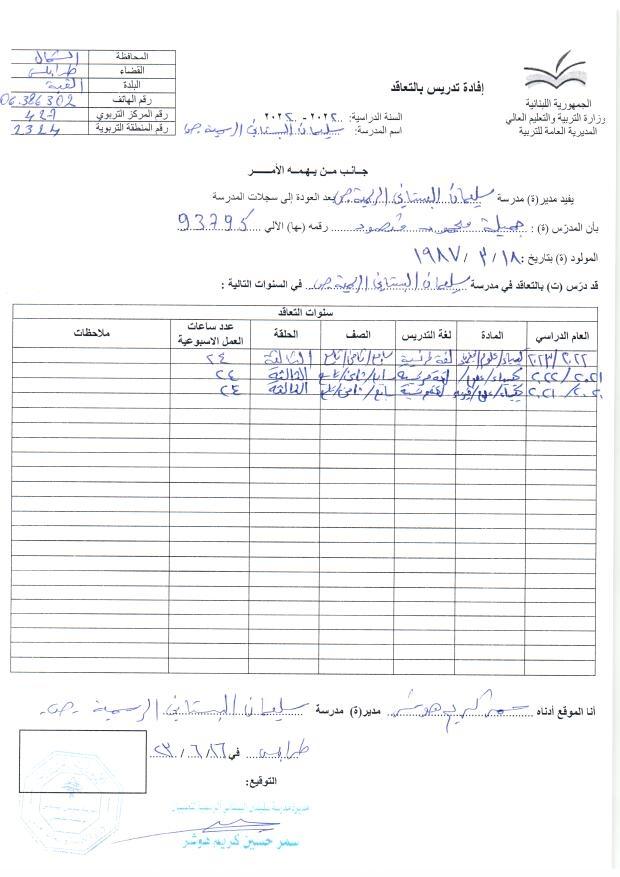 الجمهورية اللبنانية
وزارة التربية والتعليم العالي
المديرية العامة للتربية
إفادة تدريس بالتعاقد
السنة الدراسية: ٢٠٢٢ - ٢٠٢٣
اسم المدرسة: سليمان البستاني الرسمية
المحافظة الشمال
القضاء طرابلس
البلدة القبة
رقم الهاتف 06.386302
رقم المركز التربوي 427
رقم المنطقة التربوية 2324
جانب من يهمه الأمر
يفيد مدير(ة) مدرسة سليمان البستاني الرسمية بعد العودة إلى سجلات المدرسة
بان المدرّس (ة) : جميلة محمود مقصود رقمه (ها) الالي 93795
المولود (ة) بتاريخ : ١٨ / ٣ / ١٩٨٧
قد درّس (ت) بالتعاقد في مدرسة سليمان البستاني الرسمية في السنوات التالية :
سنوات التعاقد
العام الدراسي المادة لغة التدريس الصف الحلقة عدد ساعات العمل الاسبوعية ملاحظات
٢٠٢٢/٢٠٢٣ كيمياء/علوم/ لغة فرنسية سابع/ثامن/تاسع الثالثة ٢٤
٢٠٢١/٢٠٢٢ كيمياء/علوم/ لغة فرنسية سابع/ثامن/تاسع الثالثة ٢٤
٢٠٢٠/٢٠٢١ كيمياء/علوم/ لغة فرنسية سابع/ثامن/تاسع الثالثة ٢٤
أنا الموقع أدناه سمر كريم هوشر مدير(ة) مدرسة سليمان البستاني الرسمية
طرابلس في ٢٦/٦/٢٣
التوقيع:
مديرة مدرسة سليمان البستاني الرسمية
سمر حسين كريم هوشر